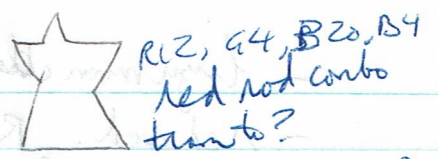 R12, G4, B20, B4
red rod combo
train to?